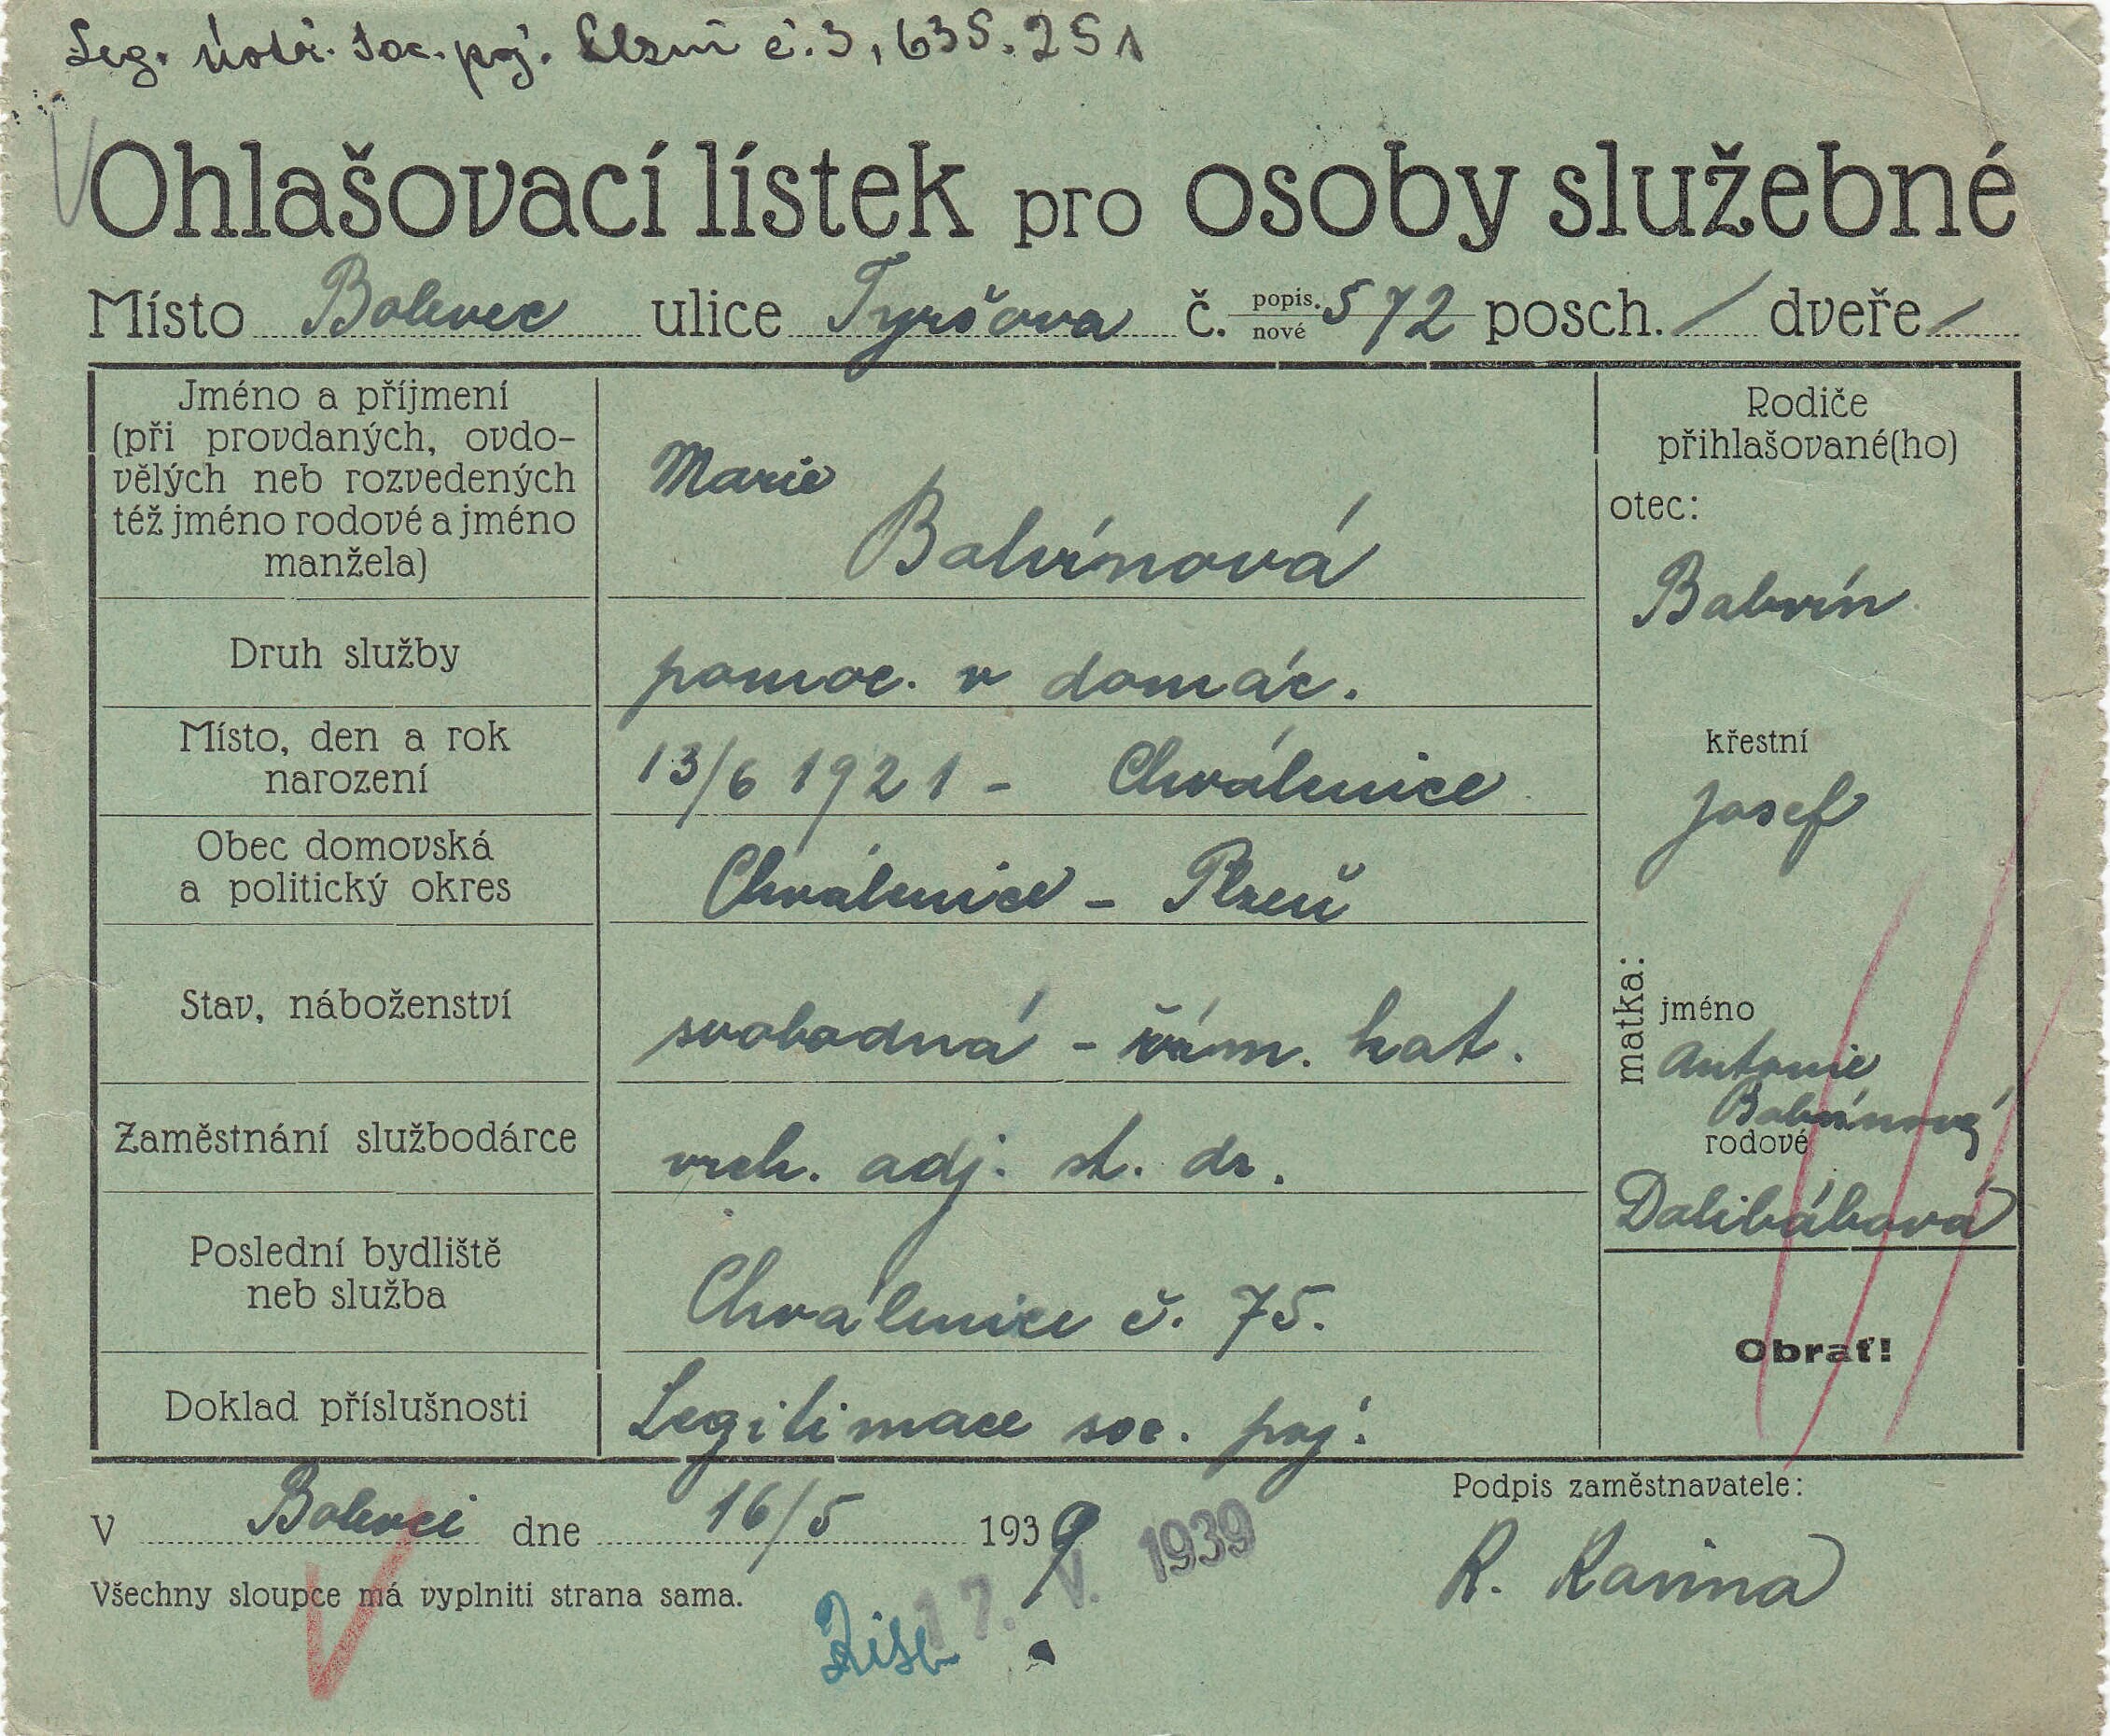 Leg. Ústř. soc. poj. Plzni č. 3,635.251
Ohlašovací lístek pro osoby služebné
Místo Bolevec ulice Tyršova č. popis. nové 572 posch. / dveře /
Jméno a příjmení
(při provdaných, ovdo-
vělých neb rozvedených
též jméno rodové a jméno
manžela)
Marie
Balvínová
Druh služby
pomoc. v domác.
Místo, den a rok
narození
13/6 1921 - Chválenice
Obec domovská
a politický okres
Chválenice - Plzeň
Stav, náboženství
svobodná - řím. kat.
Zaměstnání služebodárce
vrch. adj. st. dr.
Poslední bydliště
neb služba
Chválenice č. 75.
Doklad příslušnosti
Legitimace soc. poj.
Rodiče
přihlašované(ho)
otec:
Balvín
křestní
Josef
matka:
jméno
Antonie
Balvínová
rodové
Dalibábová
Obrať!
V Bolevci dne 16/5 1939
Všechny sloupce má vyplniti strana sama.
17. V. 1939
Podpis zaměstnavatele:
R. Kavina